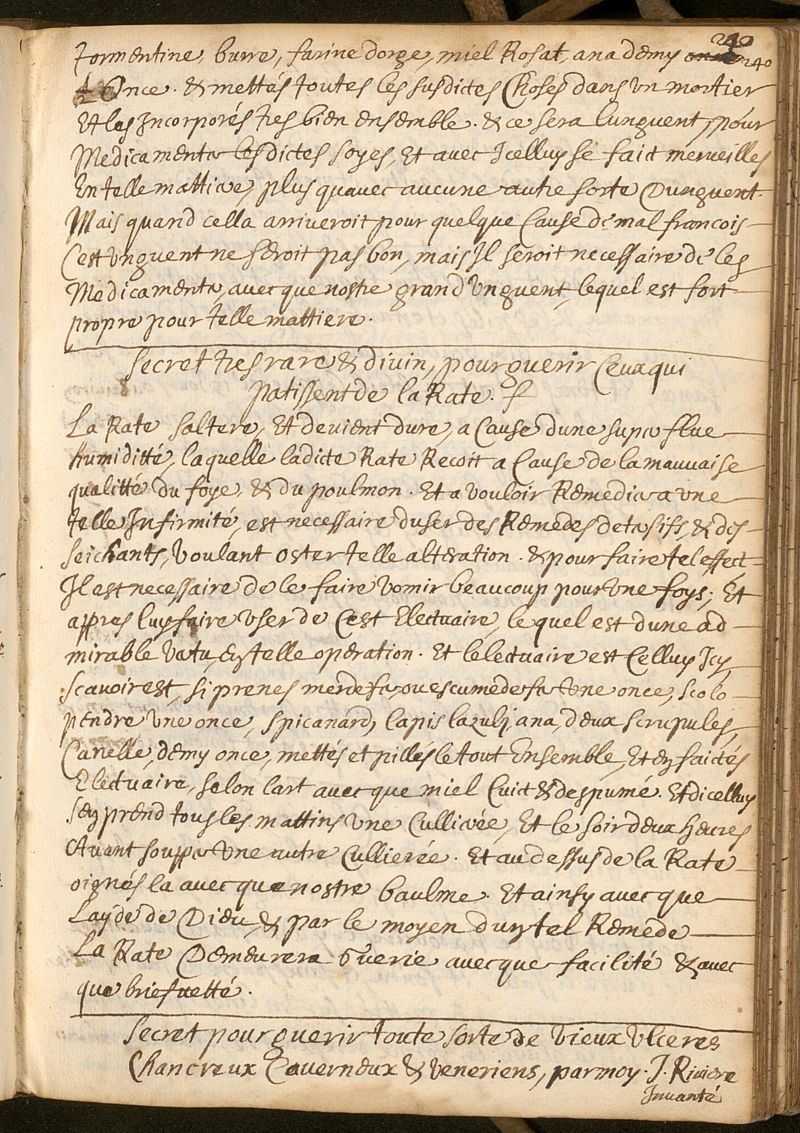 240
tormentine, burre, farine dorge, miel Rosat, ana demy 240
once. & mettés toutes les susdictes Choses dans un mortier
Et les Incorporés tres bien ensemble. & ce sera lunguent, pour
Medicamenter lesdictes soyes, Et avec Icelluy se faict merveilles
En telle mattiere, plus quavec aucune autre sorte Dunguent.
Mais quand cella arriveroit pour quelque Cause de mal francois
Cest unguent ne seroit pas bon, mais Il seroit necessaire de les
Medicamenter, avecque nostre grand Unguent, lequel est fort
propre pour telle mattiere.
Secret tres rare & divin, pour guerir Ceux qui
patissent de la Rate.
La Rate Saltere, Et devient dure, a Cause dune superflue
humiditté, laquelle ladicte Rate Recoit a Cause de la mauvaise
qualitté du foye, & du poulmon. Et a vouloir Remedier a une
telle Infirmité, est necessaire duser des Remedes detersifs, & des-
seichants, Voulant oster telle alteration. & pour faire tel effect
Il est necessaire de le faire vomir beaucoup pour une foys, Et
appres luy faire User de Cest Electuaire, le quel est dune ad-
mirable Vertu en telle operation. Et lelectuaire est Celluy Icy
Scavoir est, Si prenes merde fer, ou escume de fer une once, Scolo-
pendre une once, Spicanard, lapis lazulj ana, deux scrupules,
Canelle, demy once, mettes et pilles le tout Ensemble, Et en faictes
Electuaire, selon lart avecque miel Cuict & despumé. Et dicelluy
sen prend tous les mattins une Cullierée, Et le soir deux heures
Avant soupper une autre Cullierée. Et au dessus de la Rate
oignés la avecque nostre baulme. Et ainsy avecque
Layde de Dieu, & par le moyen dun tel Remede
La Rate Demeurera Guerie avecque facilité & avec
que briefvetté.
Secret pour guerir toute sorte de Vieux Ulceres
Chancreux Caverneux & Veneriens, par moy. J. Riviere
Inventé